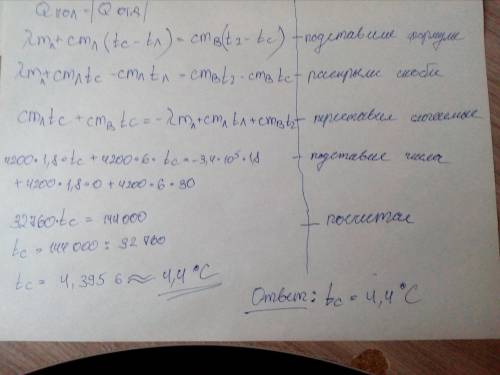 Qпол = |Qотд|
λmл + cmл(tc - tл) = cmв(t2 - tc) - подставили формулы
λmл + cmлtc - cmлtл = cmвt2 - cmвtc - раскрыли скобки
cmлtc + cmвtc = -λmл + cmлtл + cmвt2 - переставили слагаемые
4200·1,8·tc + 4200·6·tc = -3,4·10⁵·1,8 - подставили числа
+ 4200·1,8·0 + 4200·6·30
32760·tc = 144000 - посчитал
tc = 144000 : 32760
tc = 4,3956 ≈ 4,4°C
Ответ: tc = 4,4°C